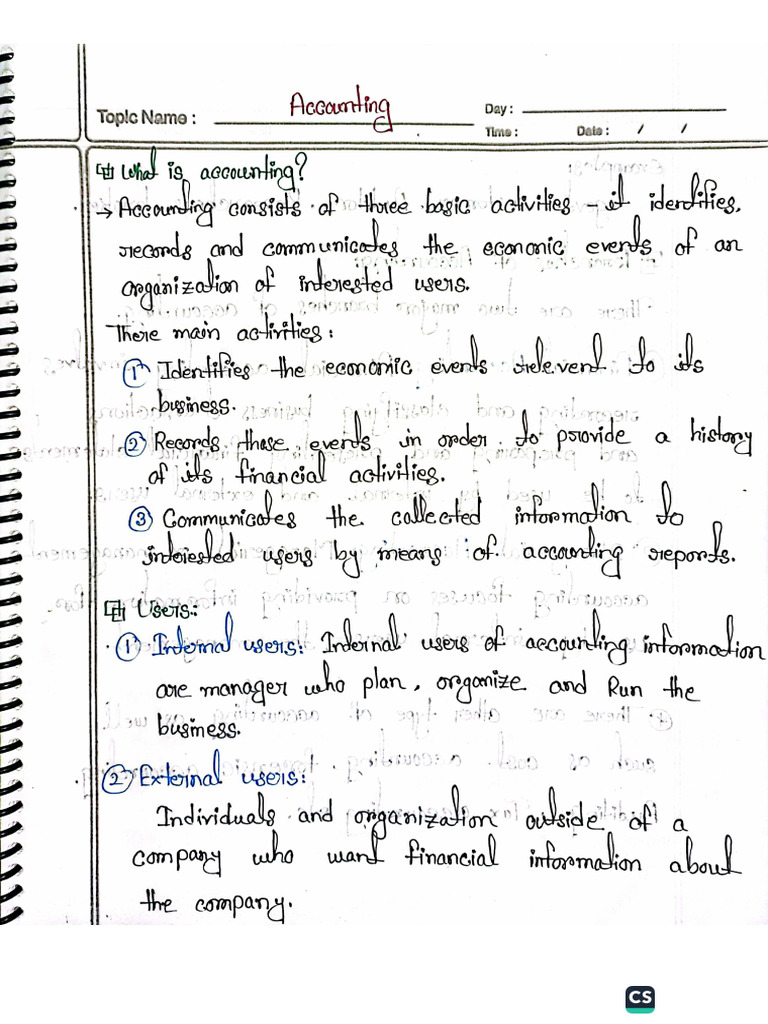 Topic Name : Accounting Day :
Time : Date : / /
What is accounting?
→ Accounting consists of three basic activities – it identifies,
records and communicates the economic events of an
organization of interested users.
There main activities :
① Identifies the economic events relevent to its
business.
② Records these events in order to provide a history
of its financial activities.
③ Communicates the collected information to
interested users by means of accounting reports.
Users:
① Internal users: Internal users of accounting information
are manager who plan, organize and Run the
business.
② External users:
Individuals and organization outside of a
company who want financial information about
the company.
CS